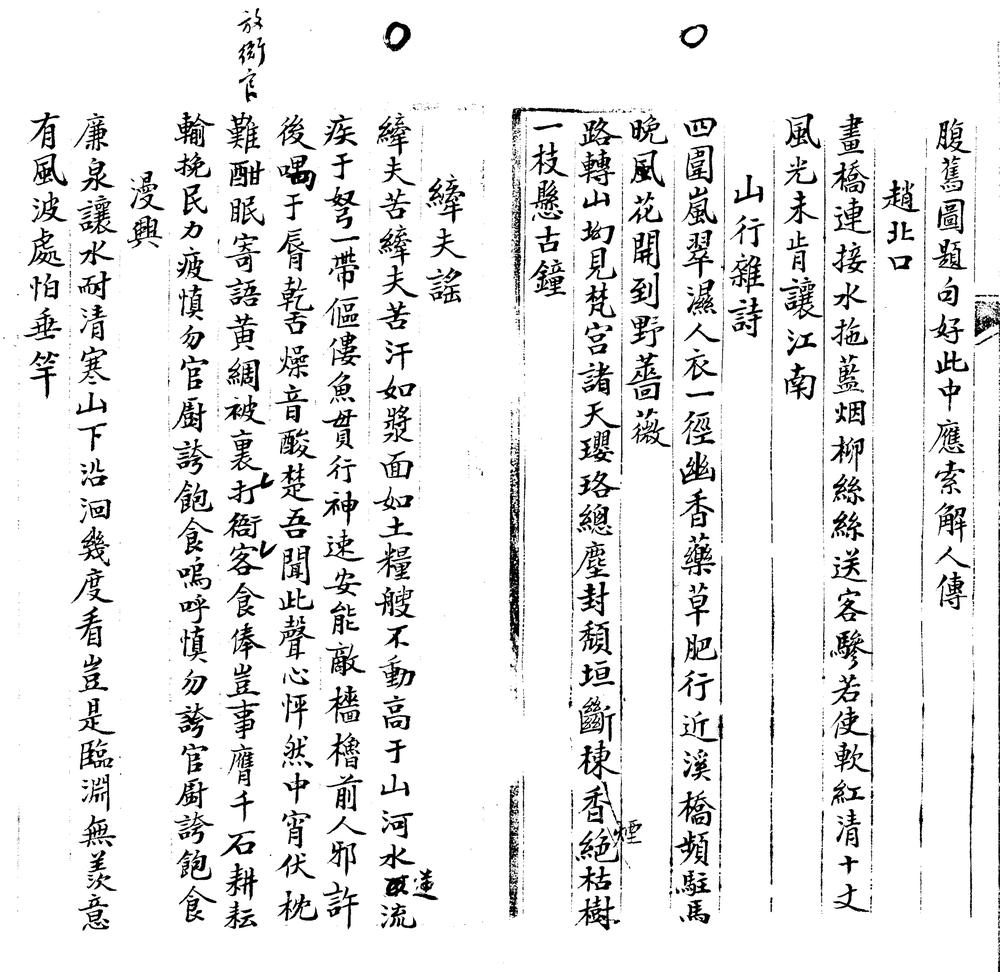 腹舊圖題句好此中應索解人傳
趙北口
畫橋連接水拖藍烟柳絲絲送客驂若使軟紅清十丈
風光未肯讓江南
山行雜詩
四圍嵐翠濕人衣一徑幽香藥草肥行近溪橋頻駐馬
晚風花開到野薔薇
路轉山坳見梵宮諸天瓔珞總塵封頹垣斷棟香絕枯樹
煙
一枝懸古鐘
縴夫謠
縴夫苦縴夫苦汗如漿面如土糧艘不動高于山河水流
逆
疾于弩一帶傴僂魚貫行神速安能敵檣櫓前人邪許
後喁于脣乾舌燥音酸楚吾聞此聲心怦然中宵伏枕
難酣眠寄語黃綢被裏打衙客食俸豈事膺千石耕耘
放衙官
輸挽民力疲慎勿官廚誇飽食嗚呼慎勿誇官廚誇飽食
漫興
廉泉讓水耐清寒山下沿洄幾度看豈是臨淵無羨意
有風波處怕垂竿